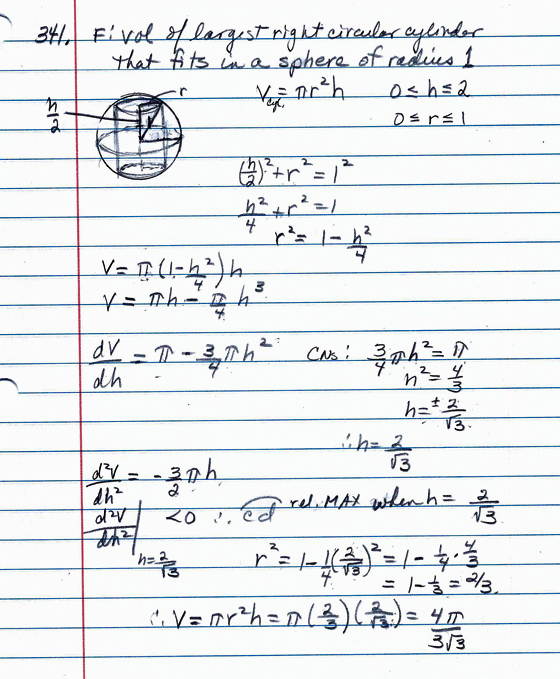 341. F: vol of largest right circular cylinder
that fits in a sphere of radius 1
h/2 r V_cyl. = πr²h 0 ≤ h ≤ 2
0 ≤ r ≤ 1
(h/2)² + r² = 1²
h²/4 + r² = 1
r² = 1 - h²/4
V = π(1 - h²/4)h
V = πh - π/4 h³
dV/dh = π - 3/4 πh² CNs: 3/4 πh² = π
h² = 4/3
h = ± 2/√3
∴ h = 2/√3
d²V/dh² = -3/2 πh
d²V/dh² | h = 2/√3 < 0 ∴ cd rel. MAX when h = 2/√3
r² = 1 - 1/4(2/√3)² = 1 - 1/4 · 4/3
= 1 - 1/3 = 2/3.
∴ V = πr²h = π(2/3)(2/√3) = 4π/3√3